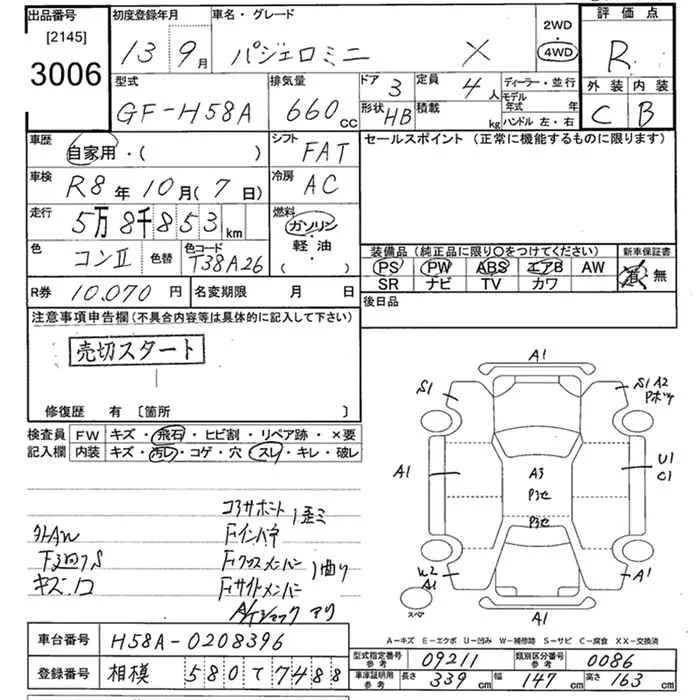 出品番号
[2145]
3006
初度登録年月
13 9月
車名・グレード
パジェロミニ X
2WD
4WD
評価点
R
型式
GF-H58A
排気量
660 CC
ドア
3
形状
HB
定員
4人
積載
kg
ディーラー・並行
モデル年式 年
ハンドル 左・右
外装 内装
C B
車歴
自家用・( )
シフト
FAT
セールスポイント (正常に機能するものに限ります)
車検
R8年10月(7日)
冷房
AC
走行
5万8千853km
燃料
ガソリン
軽油
( ・ )
色
コンⅡ
色替
色コード
T38A26
装備品 (純正品に限り○をつけてください)
新車保証書
PS PW ABS エアB AW
有・無
SR ナビ TV カワ
R券 10,070円
名変期限 月 日
後日品
注意事項申告欄(不具合内容等は具体的に記入して下さい)
売切スタート
修復歴 有 [箇所 ]
検査員記入欄
FW キズ・飛石・ヒビ割・リペア跡・×要
内装 キズ・汚レ・コゲ・穴・スレ・キレ・破レ
コアサポート 歪ミ
外AW
Fインパネ
下廻りS
Fクロスメンバー 曲り
キズ・凹
Fサイドメンバー
A/Tショック アリ
A1
S1
S1 A2
Pボツ
A1
A3
P3セ
P3セ
U1
C1
W2
A1
A1
スペア
A1
A-キズ E-エクボ U-凹み W-補修跡 S-サビ C-腐食 XX-交換済
車台番号 H58A-0208396
登録番号 相模 580て7488
型式指定番号 参考 09211
類別区分番号 参考 0086
車庫証明用 参考
長さ 339cm 幅 147cm 高さ 163cm